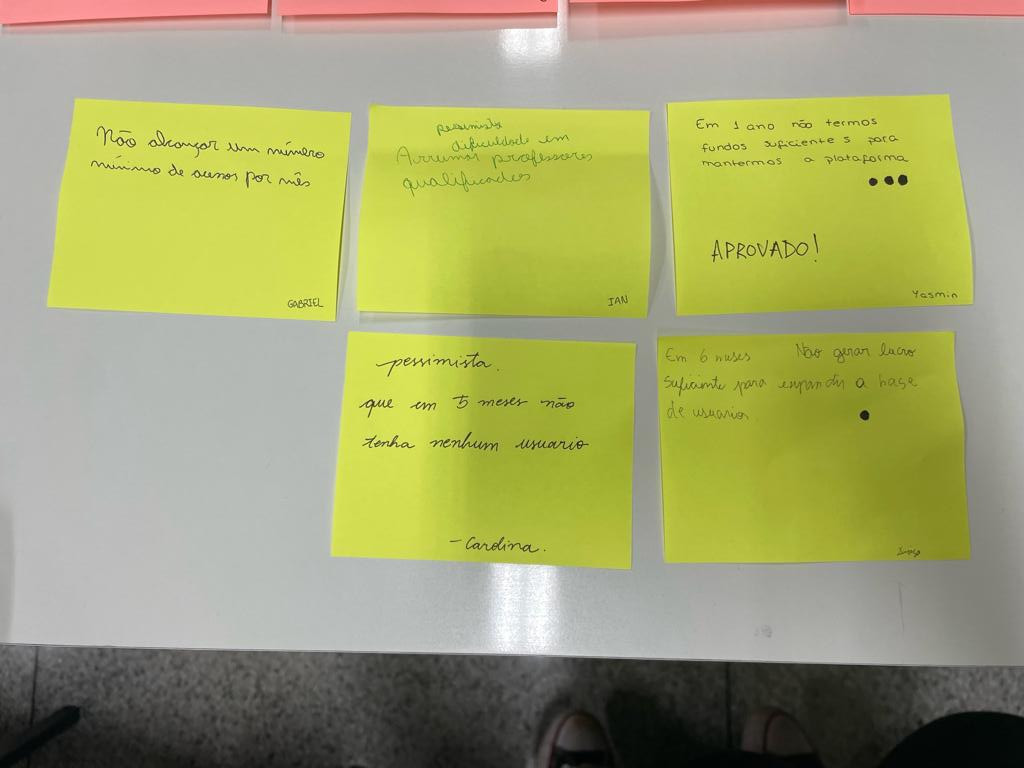 Não alcançar um número
mínimo de acessos por mês
GABRIEL
pessimista
dificuldade em
Arrumar professores
qualificados
IAN
Em 1 ano não termos
fundos suficiente s para
mantermos a plataforma
APROVADO!
Yasmin
pessimista.
que em 5 meses não
tenha nenhum usuario
- Carolina.
Em 6 meses Não gerar lucro
suficiente para expandir a base
de usuarios.